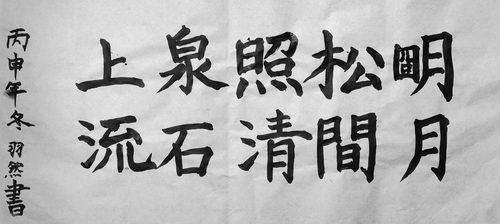 朙月
松間
照清
泉石
上流
丙申年冬羽然書